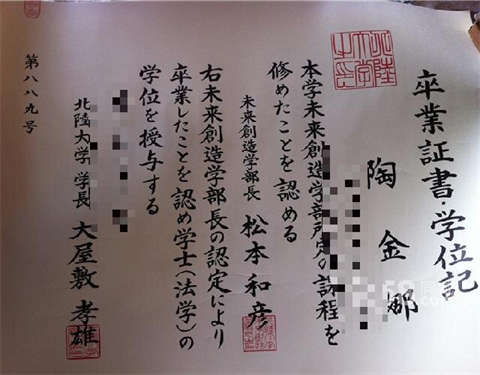 卒業証書・学位記
陶金娜
本学未来創造学部所定の課程を
修めたことを認める
未来創造学部長 松本和彦
右未来創造学部長の認定により
卒業したことを認め学士(法学)の
学位を授与する
北陸大学 学長 大屋敷孝雄
第八八九号